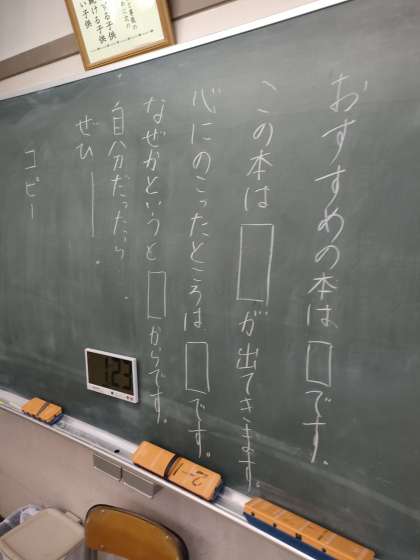 おすすめの本は□です。
この本は□が出てきます。
心にのこったところは□です。
なぜかというと□からです。
自分だったら
ぜひ──。
コピー